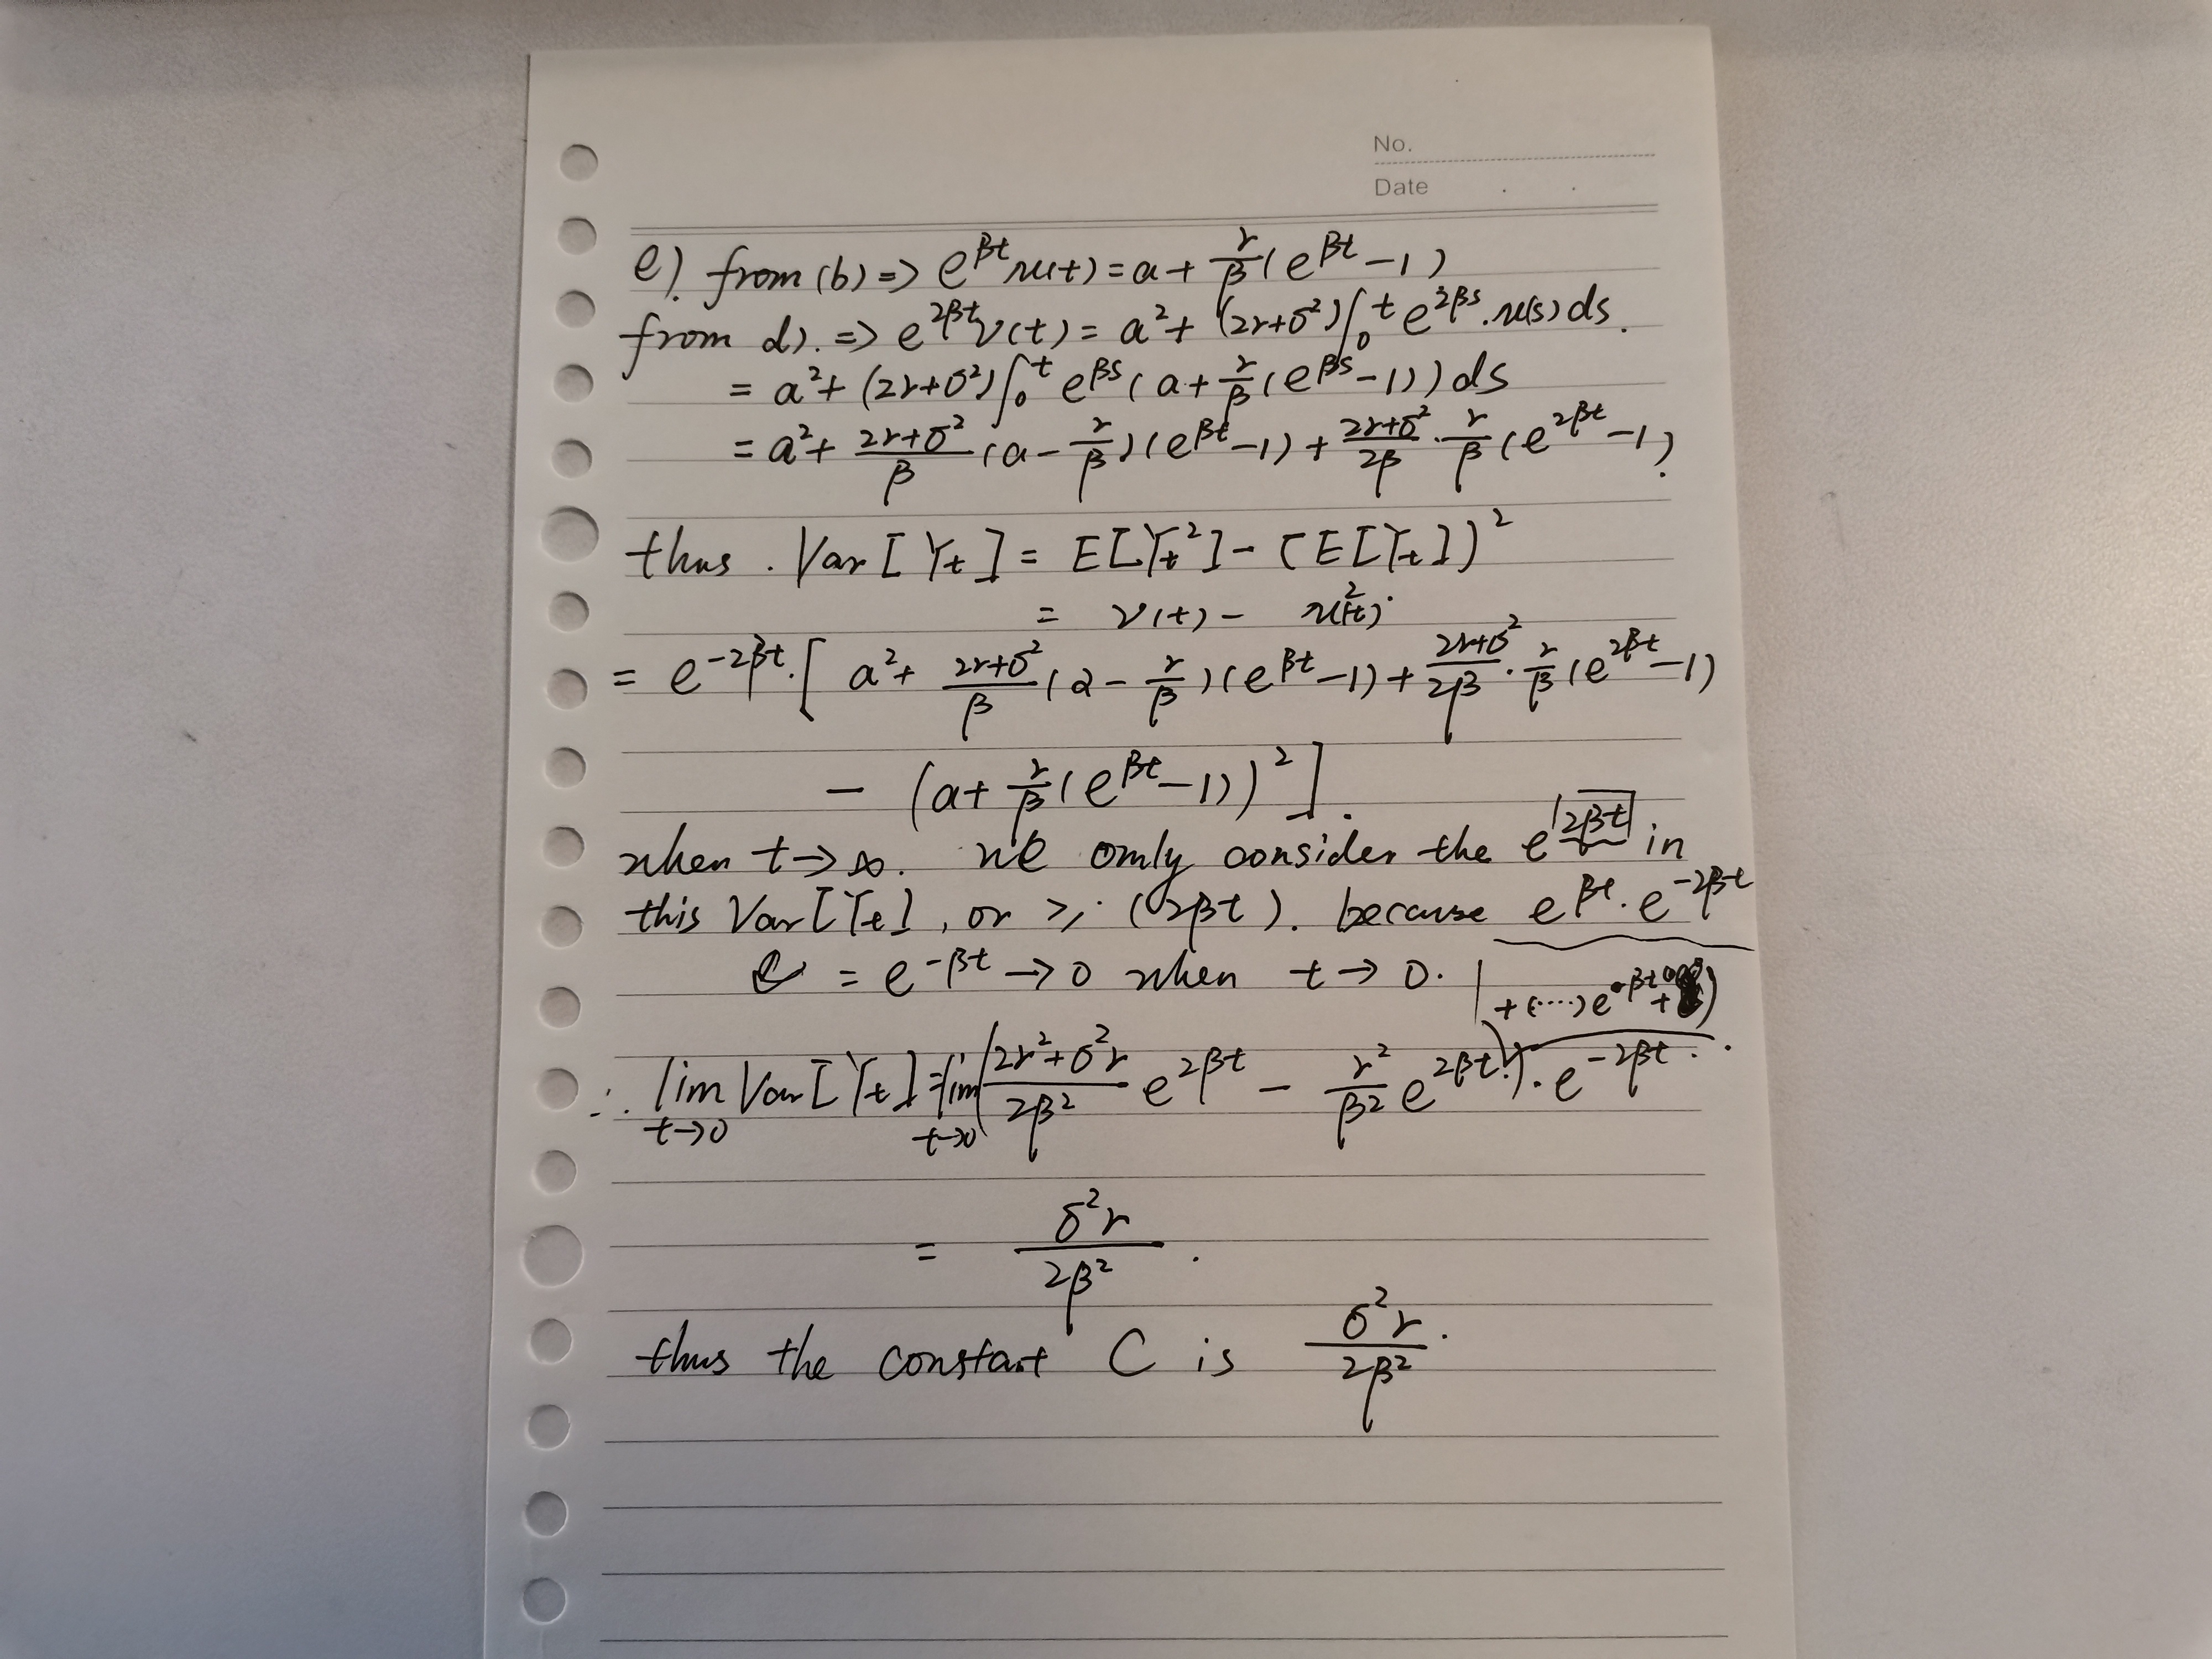 No.
Date
e). from (b) => e^{βt} u(t) = a + r/β (e^{βt} - 1)
from d). => e^{2βt} v(t) = a² + (2r+σ²) ∫₀^t e^{2βs} · u(s) ds.
= a² + (2r+σ²) ∫₀^t e^{βs} (a + r/β (e^{βs} - 1)) ds
= a² + (2r+σ²)/β (a - r/β)(e^{βt} - 1) + (2r+σ²)/2β · r/β (e^{2βt} - 1).
thus. Var[Y_t] = E[Y_t²] - (E[Y_t])²
= v(t) - u²(t).
= e^{-2βt} · [ a² + (2r+σ²)/β (a - r/β)(e^{βt} - 1) + (2r+σ²)/2β · r/β (e^{2βt} - 1)
- (a + r/β (e^{βt} - 1))² ].
when t → ∞. we only consider the e^{2βt} in
this Var[Y_t], or ≥ (2βt). because e^{βt} · e^{-2βt}
= e^{-βt} → 0 when t → 0.
+(....)e^{βt}
∴ lim_{t→0} Var[Y_t] = lim_{t→0} ( (2r²+σ²r)/2β² e^{2βt} - r²/β² e^{2βt} ) · e^{-2βt}.
= σ²r/2β² .
thus the constant C is σ²r/2β² .